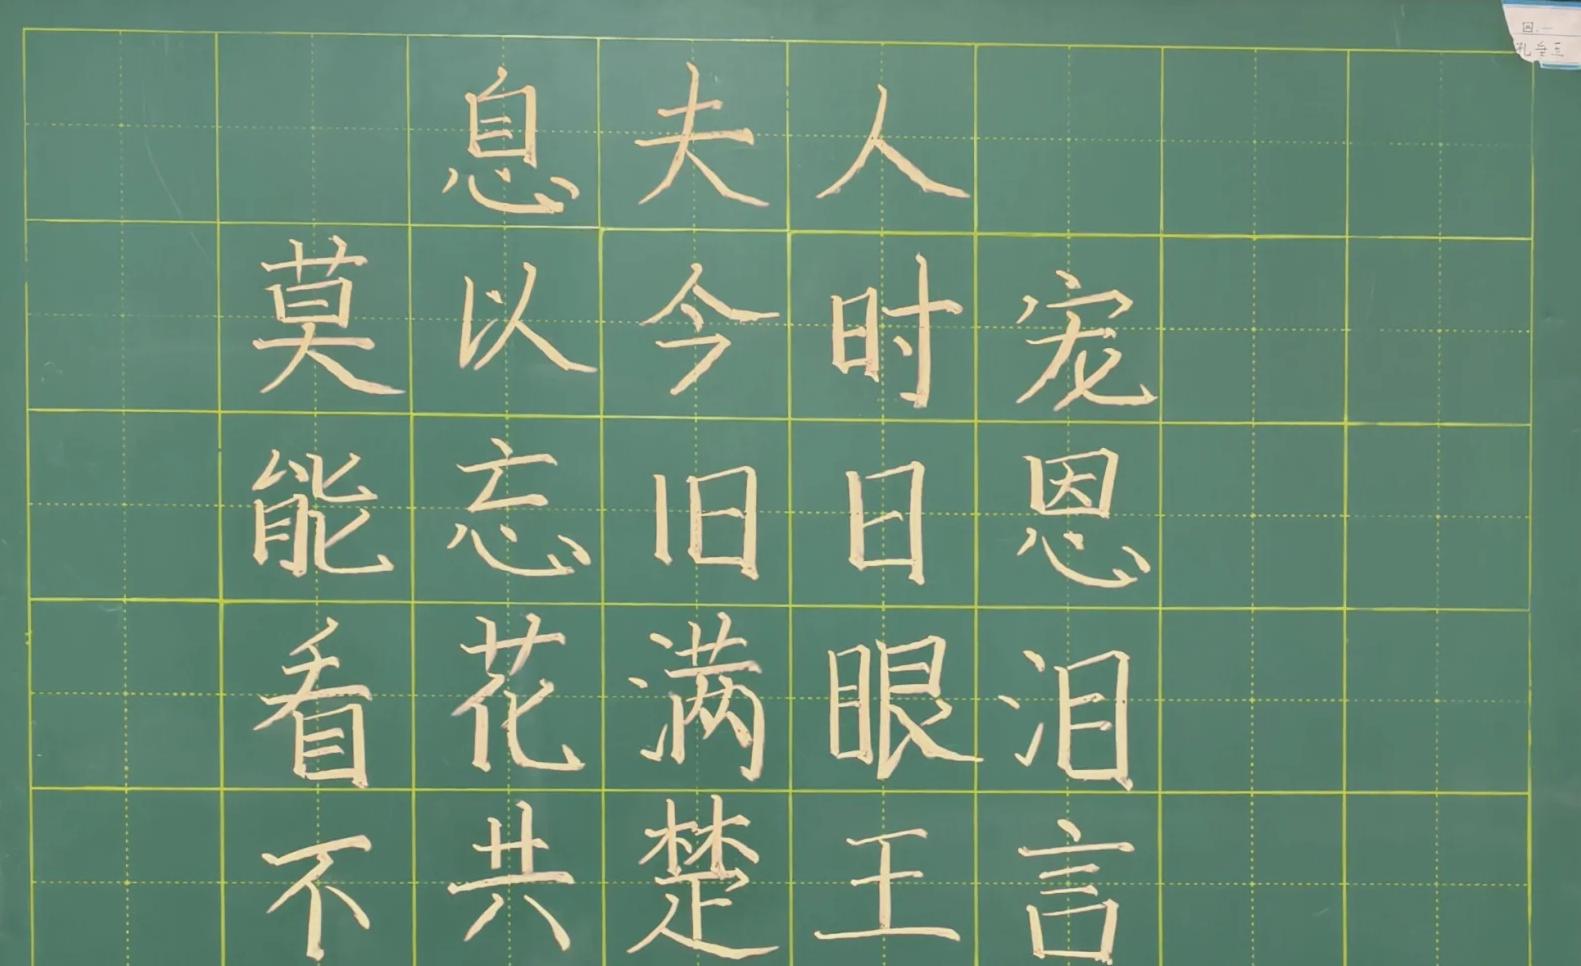 息夫人
莫以今时宠
能忘旧日恩
看花满眼泪
不共楚王言